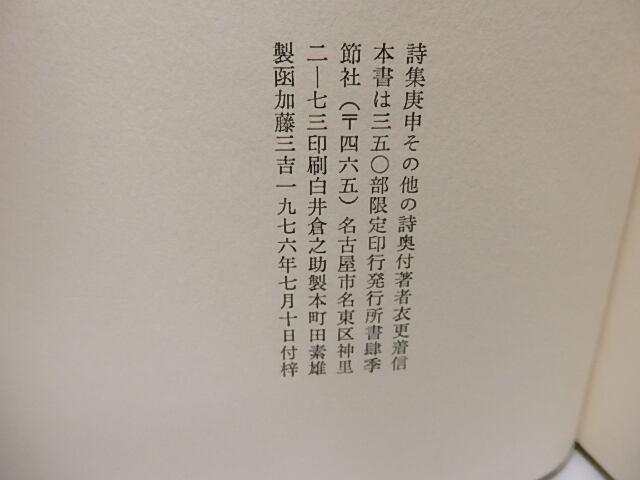 詩集庚申その他の詩奥付著者衣更着信
本書は三五〇部限定印行発行所書肆季
節社（〒四六五）名古屋市名東区神里
二―七三印刷白井倉之助製本町田素雄
製函加藤三吉一九七六年七月十日付梓